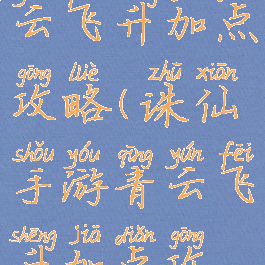 云飞升加点
gōng lüè zhū xiān
攻略(诛仙
shǒu yóu qīng yún fēi
手游青云飞
shēng jiā diǎn gōng
升加点攻